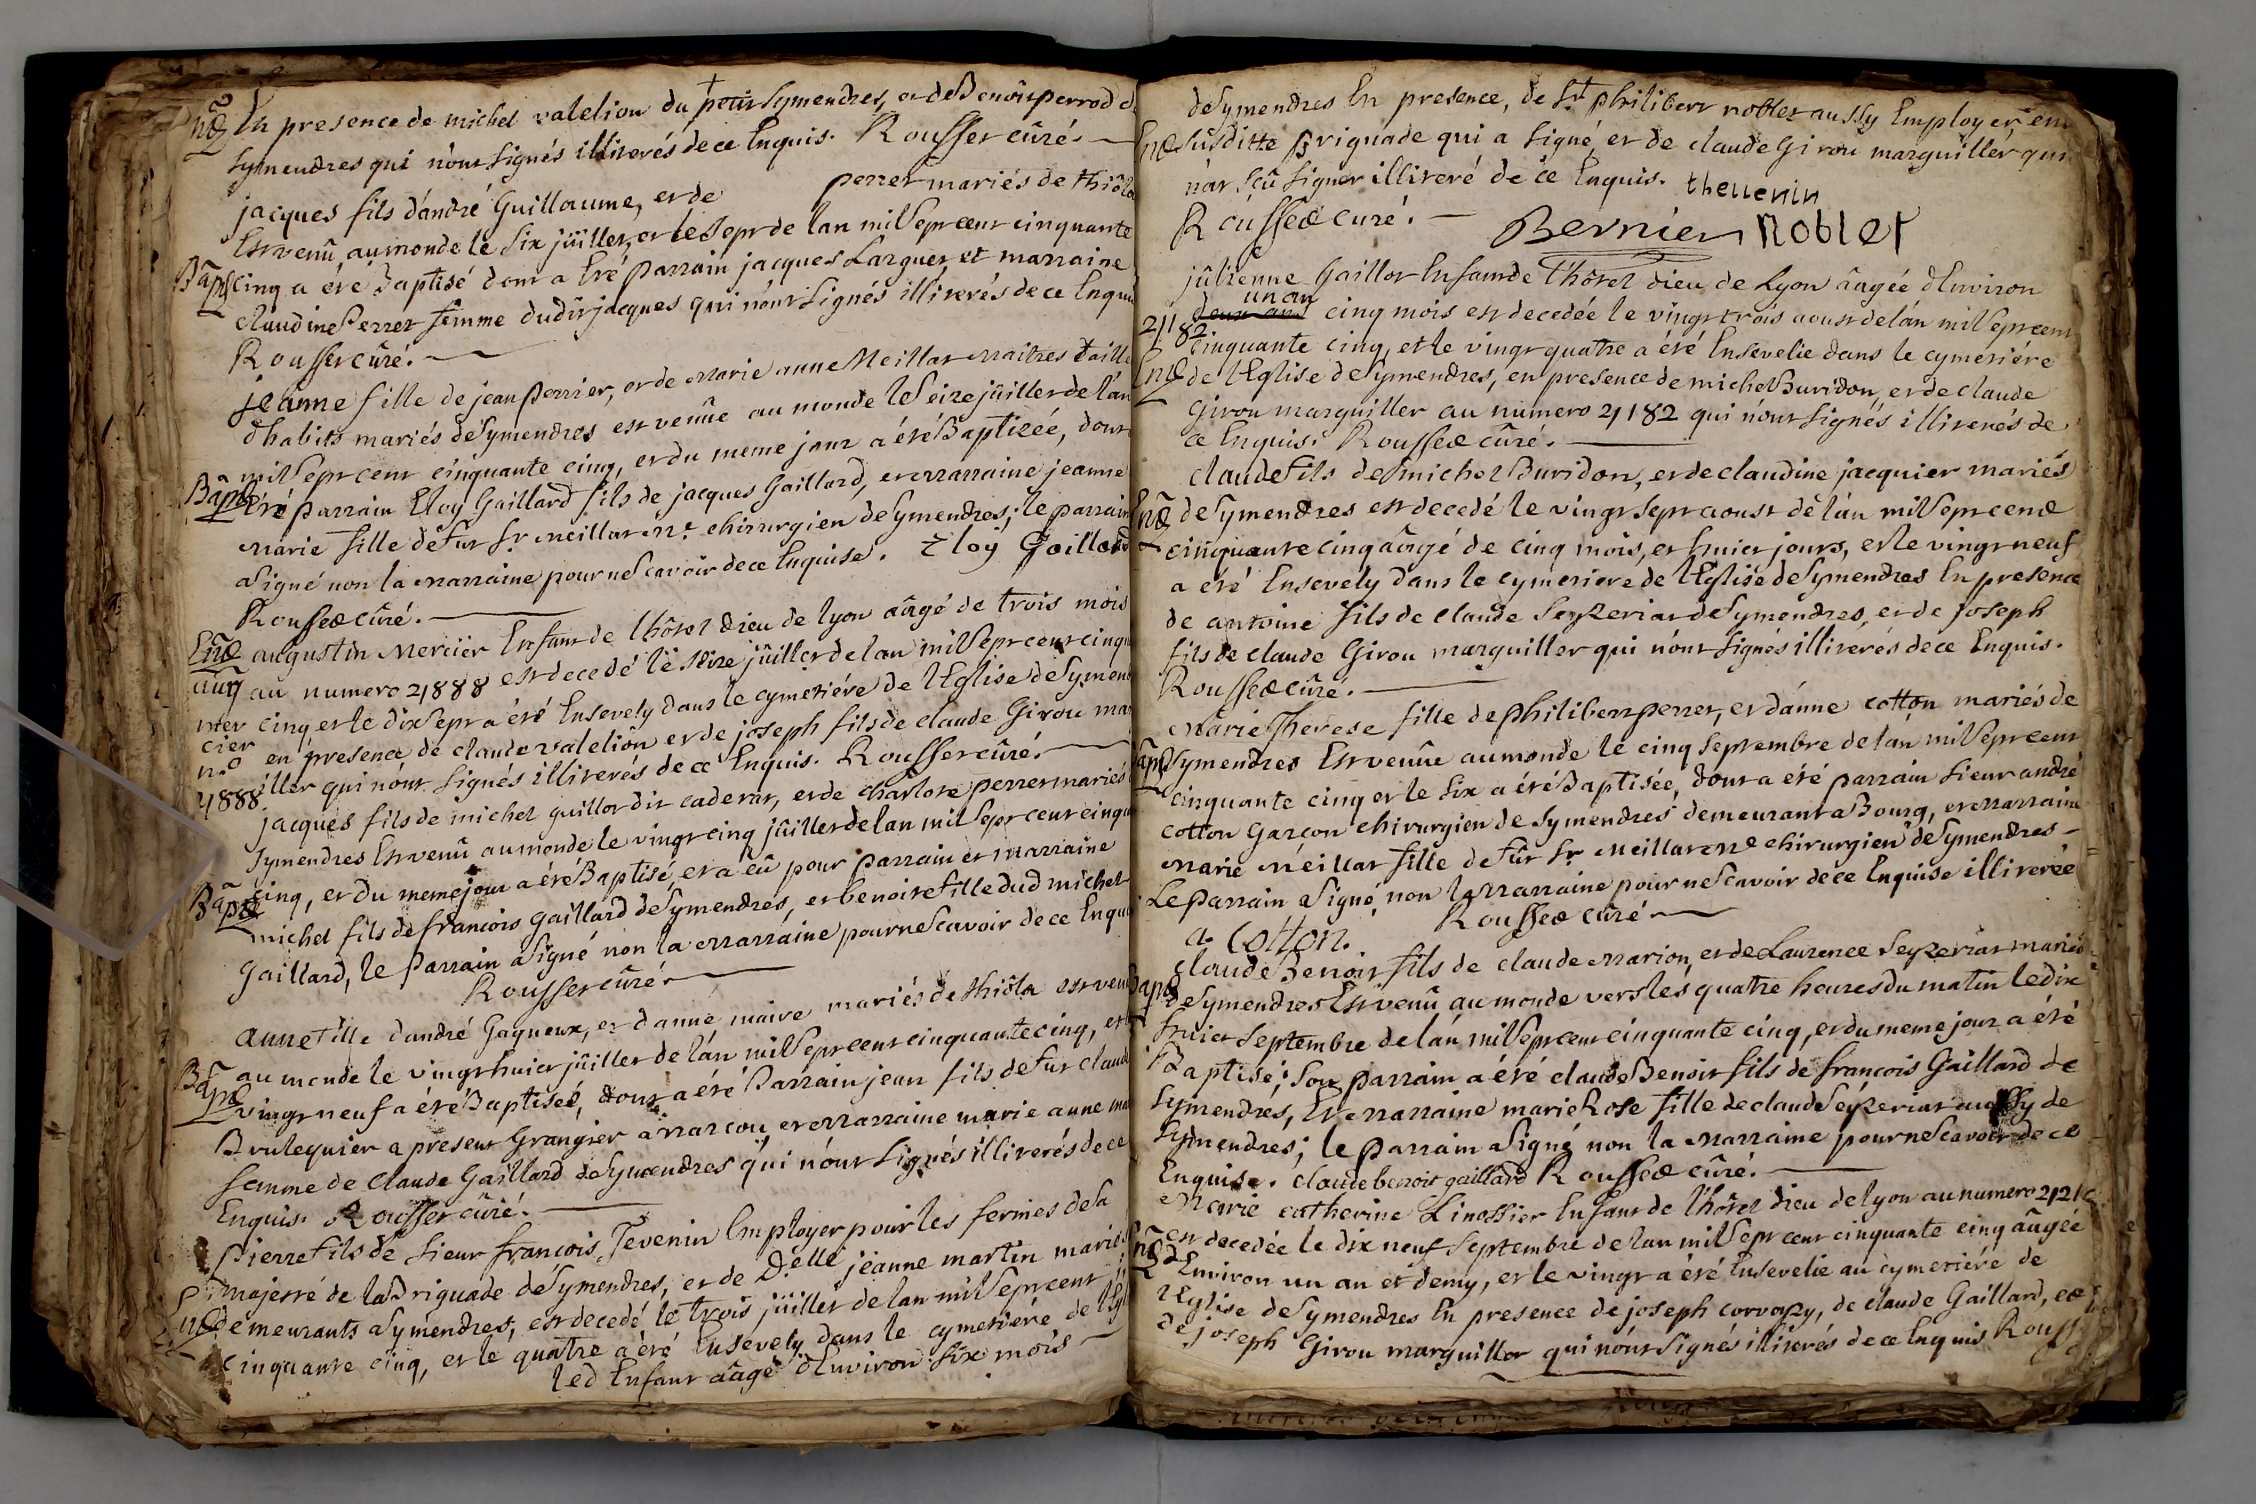 En presence de michel valelion du petit Symendres, et de Benoit perrod de
Symendres qui n'ont signés illiterés de ce Enquis. Rousset curé.
jacques fils d'andré Guillaume, et de perret mariés de thiôla
Est venû au monde le Six jüillet, et le Sept de l'an mil Sept cent cinquante
Bapt
cinq a été Baptisé dont a Eté parrain jacques Larguet et marraine
claudine Perret femme dudit jacques qui n'ont signés illiterés de ce Enquis
Rousset curé.
jeanne fille de jean perrier, et de Marie anne Meillat maitres taille
d'habits mariés de Symendres est venûe au monde le Seize jüillet de l'an
mil Sept cent cinquante cinq, et du meme jour a été Baptizée, dont
Bapt
Eté parrain Eloy Gaillard fils de jacques Gaillard, et marraine jeanne
Marie fille de fut Sr. Meillat Me. chirurgien de Symendres; le parrain
a signé non la marraine pour ne Scavoir de ce Enquise. Eloÿ Gaillard
Rousset curé.
augustin Mercier Enfant de l'hôtel Dieu de lyon âagé de trois mois
au numero 21888 est decedé le Seize jüillet de l'an mil Sept cent cinqu
aug
mer
cier
n.o
4888
cinq et le dix Sept a été Ensevely dans le cymetiére de l'Eglise de Symend
en presence de claude valelion et de joseph fils de claude Girou mar
iller qui n'ont signés illiterés de ce Enquis. Rousset curé.
jacques fils de michel guillot dit caderat, et de charlote perret mariés
Symendres Est venû au monde le vingt cinq jüillet de l'an mil Sept cent cinqu
Bapt
cinq, et du meme jour a été Baptisé, et a eû pour parrain et marraine
michel fils de francois Gaillard de Symendres, et benoite fille dud michel
Gaillard, le Parrain a Signé non la marraine pour ne Scavoir de ce Enqui
Rousset curé
anne fille d'andré Gagneux, et d'anne maire mariés de thiôla est ven
au monde le vingt huict jüillet de l'an mil Sept cent cinquante cinq, et
Bapt
vingt neuf a été Baptisée, dont a été Parrain jean fils de fut claude
Brulequier a present Grangier a marcou, et marraine marie anne
femme de claude Gaillard de Symendres qui n'ont signés illiterés de ce
Enquis. Rousset curé.
Pierre fils de Sieur francois Tevenin Employer pour les fermes de Sa
majesté de la Briguade de Symendres, et de D.elle jeanne martin mariés
demeurants a Symendres, est decedé le trois jüillet de l'an mil Sept cent
cinquante cinq, et le quatre a été Ensevely dans le cymetiére de l'Egl
led Enfant aâgé d'Environ Six mois
de Symendres En presence, de Sr. philibert noblet aussy Employer en
Susditte Briguade qui a signé, et de claude Girou marguiller qui
n'at Sçû signer illiteré de ce Enquis. thevenin
Rousset curé. Bernier noblet
jülienne Gaillot Enfant de l'hôtel dieu de Lyon âagée d'Environ
un an
deux ans cinq mois est decedée le vingt trois aoust de l'an mil Sept cent
21182
cinquante cinq, et le vingt quatre a été Ensevelie dans le cymetiére
de l'Eglise de Symendres, en presence de michel Buridon, et de claude
Girou marguiller au numero 21182 qui n'ont signés illiterés de
ce Enquis. Rousset curé.
claude fils de michel Buridon, et de claudine jacquier mariés
de Symendres est decedé le vingt Sept aoust de l'an mil Sept cent
cinquante cinq âagé de cinq mois, et huict jours, et le vingt neuf
a été Ensevely dans le cymetiere de l'Eglise de Symendres En presence
de antoine fils de claude Seyzeriat de Symendres, et de joseph
fils de claude Girou marguiller qui n'ont signés illiterés de ce Enquis.
Rousset curé.
Marie Therese fille de Philibert perret, et d'anne cotton mariés de
Bapt
Symendres Est venûe au monde le cinq Septembre de l'an mil Sept cent
cinquante cinq et le Six a été Baptisée, dont a été parrain Sieur andré
cotton Garçon chirurgien de Symendres demeurant a Bourg, et marraine
Marie Meillat fille de fût Sr Meillat Me chirurgien de Symendres
Le Parrain a signé non la marraine pour ne Scavoir de ce Enquise illiterée
Rousset curé
a. Cotton.
claude Benoit fils de claude Marion, et de Laurence Seyzeriat mariés
Bapt
de Symendres Est venû au monde vers les quatre heures du matin le dix
huict Septembre de l'an mil Sept cent cinquante cinq, et du meme jour a été
Baptisé; Son parrain a été claude Benoit fils de francois Gaillard de
Symendres, Et marraine marie Rose fille de claude Seyzeriat aussy de
Symendres; le parrain a signé non la marraine pour ne Scavoir de ce
Enquise. claude benoit gaillard Rousset curé.
Marie catherine Linossier Enfant de l'hôtel dieu de lyon au numero
est decedée le dix neuf Septembre de l'an mil Sept cent cinquante cinq âagée
d'Environ un an et demy, et le vingt a été Ensevelie au cymetiére de
l'Eglise de Symendres En presence de joseph corvazy, de claude Gaillard, et
de joseph Girou marguiller qui n'ont signés illiterés de ce Enquis Rouss